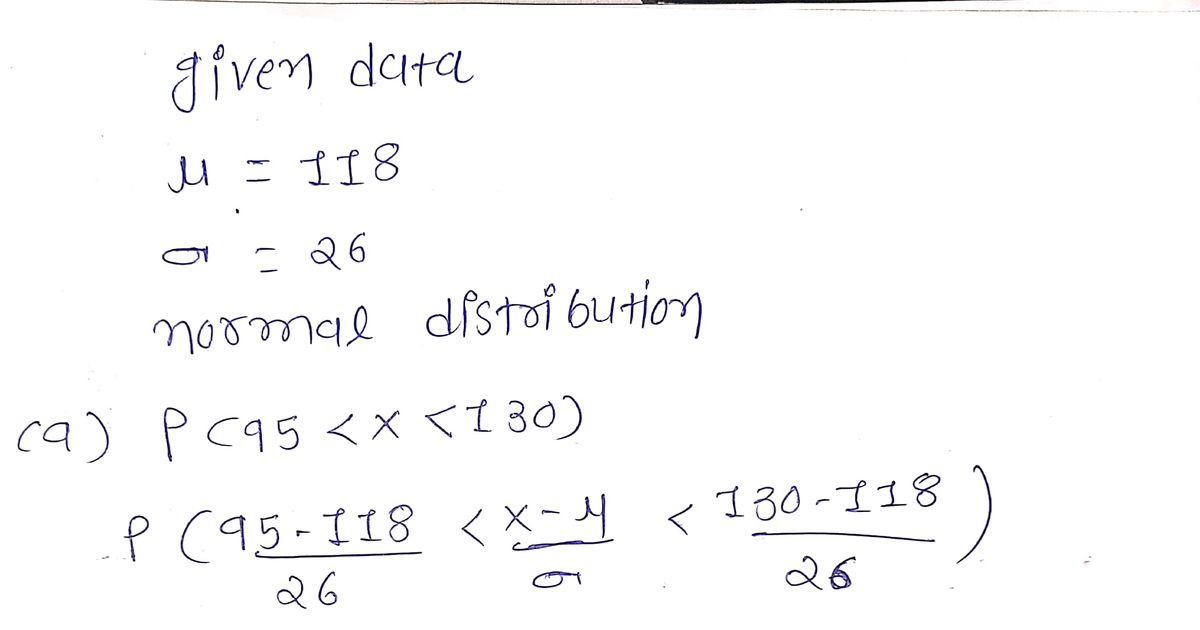 given data
μ = 118
σ = 26
normal distribution
(a) P(95 < x < 130)
P (95-118/26 < x-μ/σ < 130-118/26)